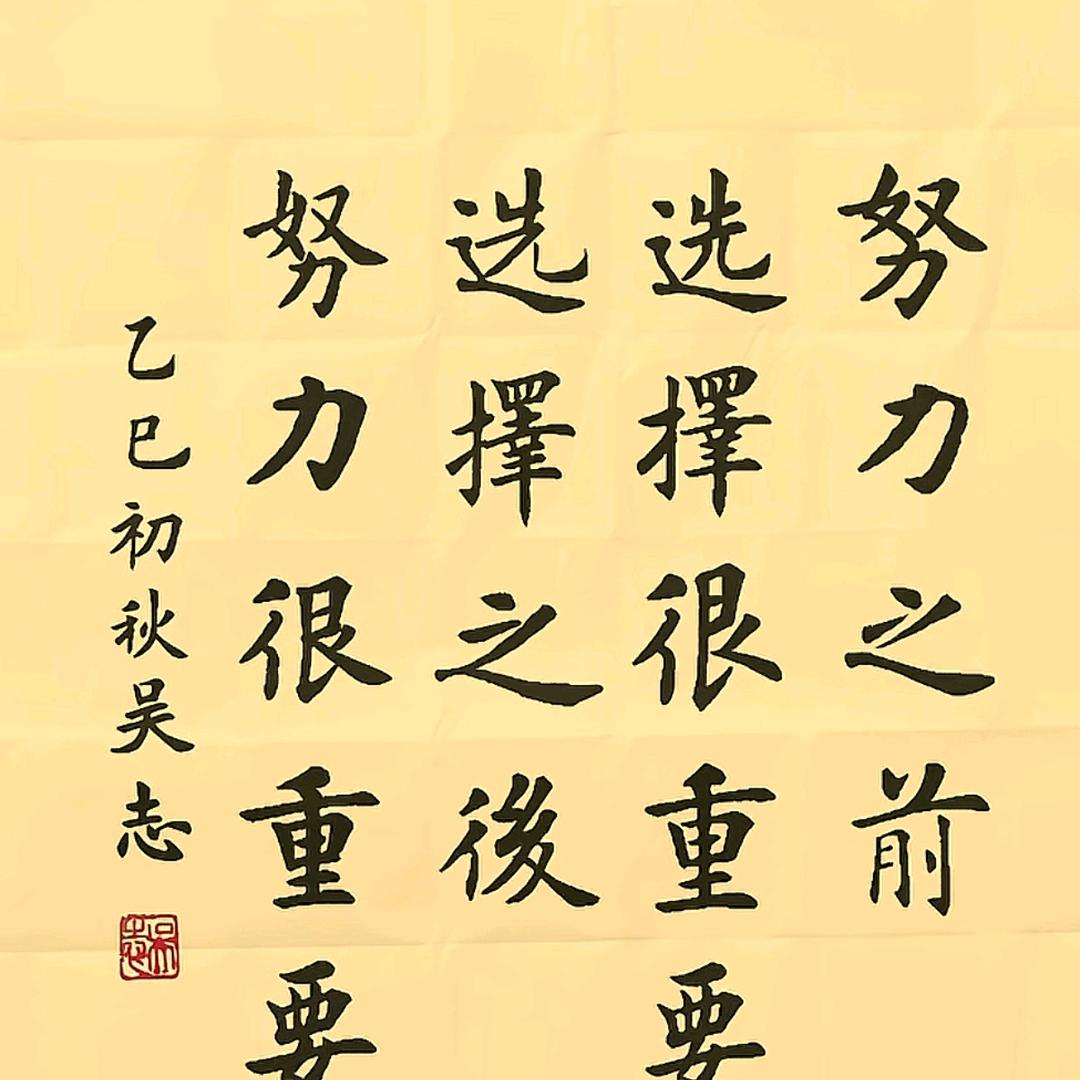 努力之前
选擇很重要
选擇之後
努力很重要
乙巳初秋吴志
吴志